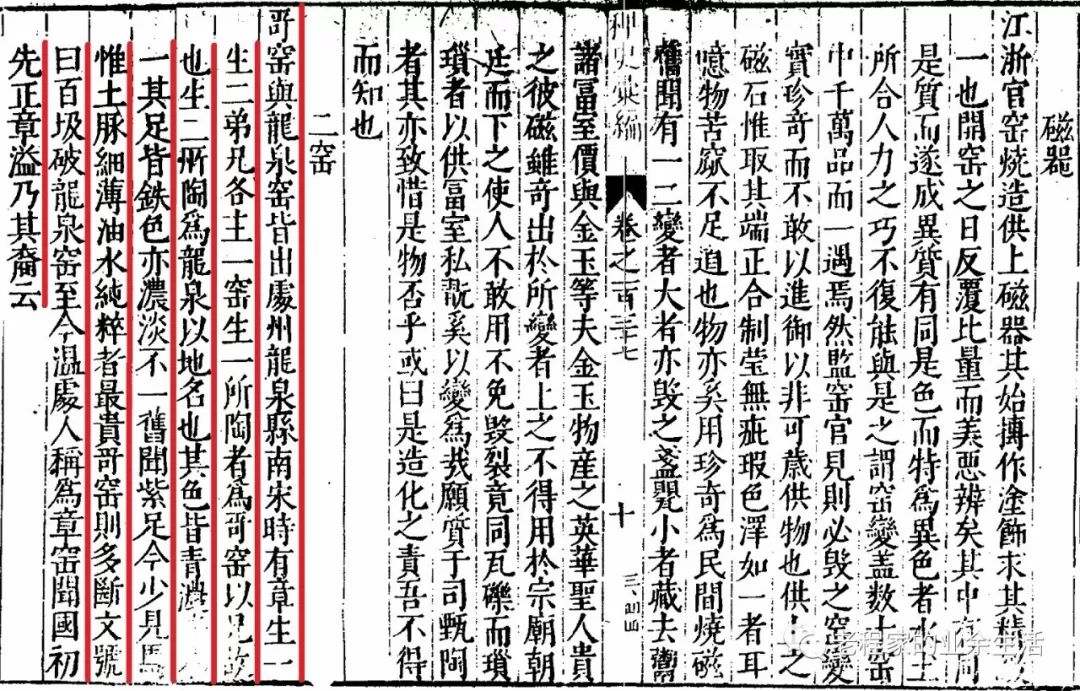 磁器
江浙官窑燒造供上磁器其始摶作塗飾求其精
一也開窑之日反覆比量而美惡辨矣其中有同
是質而遂成異質有同是色而特為異色者水土
所合人力之巧不復能與是之謂窑變蓋数十窑
中千萬品而一遇焉然監窑官見則必毁之窑變
實珍奇而不敢以進御以非可歲供物也供上之
磁石惟取其端正合制莹無疵瑕色澤如一者耳
噫物苦窳不足道也物亦奚用珍奇為民間燒磁
舊聞有一二變者大者亦毁之盞斝小者藏去鬻
稗史彙編 卷之一百三十七 十
諸富室價與金玉等夫金玉物產之英華聖人貴
之彼磁雖奇出於所變者上之不得用於宗廟朝
廷而下之使人不敢用不免毁裂竟同瓦礫而瑣
瑣者以供富室私翫奚以變爲哉願質于司甄陶
者其亦致惜是物否乎或曰是造化之責吾不得
而知也
二窑
哥窑與龍泉窑皆出處州龍泉縣南宋時有章生一
生二弟兄各主一窑生一所陶者為哥窑以兄故
也生二所陶爲龍泉以地名也其色皆青濃淡不
一其足皆鉄色亦濃淡不一舊聞紫足今少見焉
惟土脉細薄油水純粹者最貴哥窑則多斷文號
曰百圾破龍泉窑至今温處人稱為章窑聞國初
先正章溢乃其裔云
老程家的业余生活